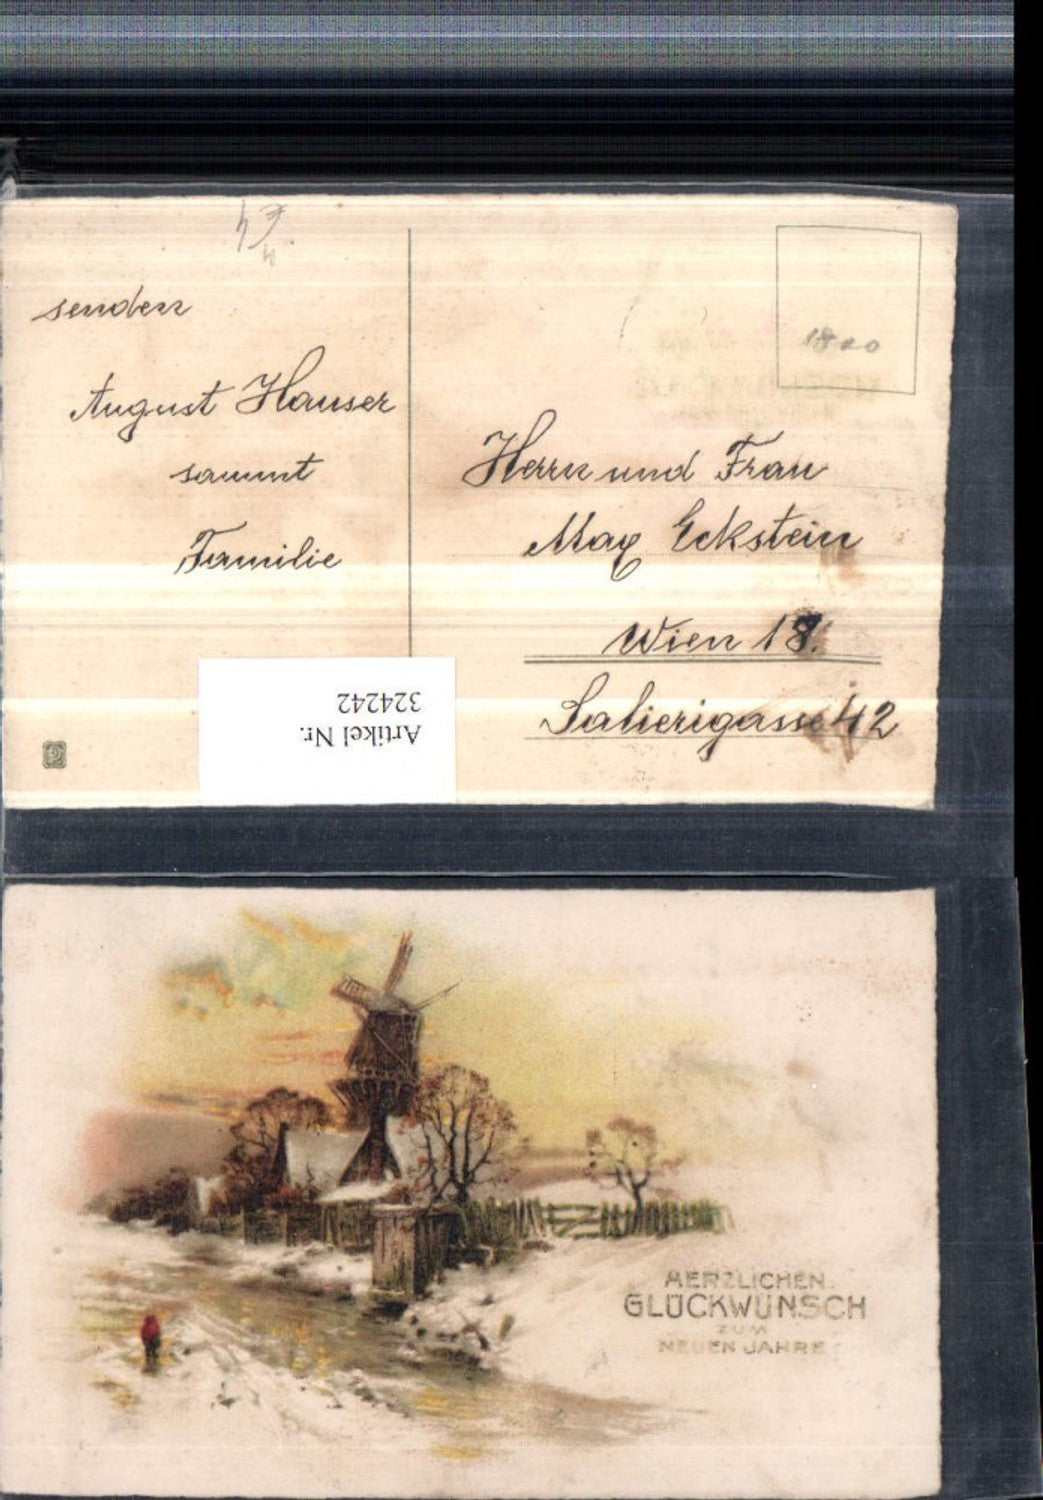 senden
August Hauser
sammt
Familie
1800
Herrn und Frau
Max Eckstein
Wien 18.
Salierigasse 42
Artikel Nr.
324242
HERZLICHEN
GLÜCKWUNSCH
ZUM
NEUEN JAHRE